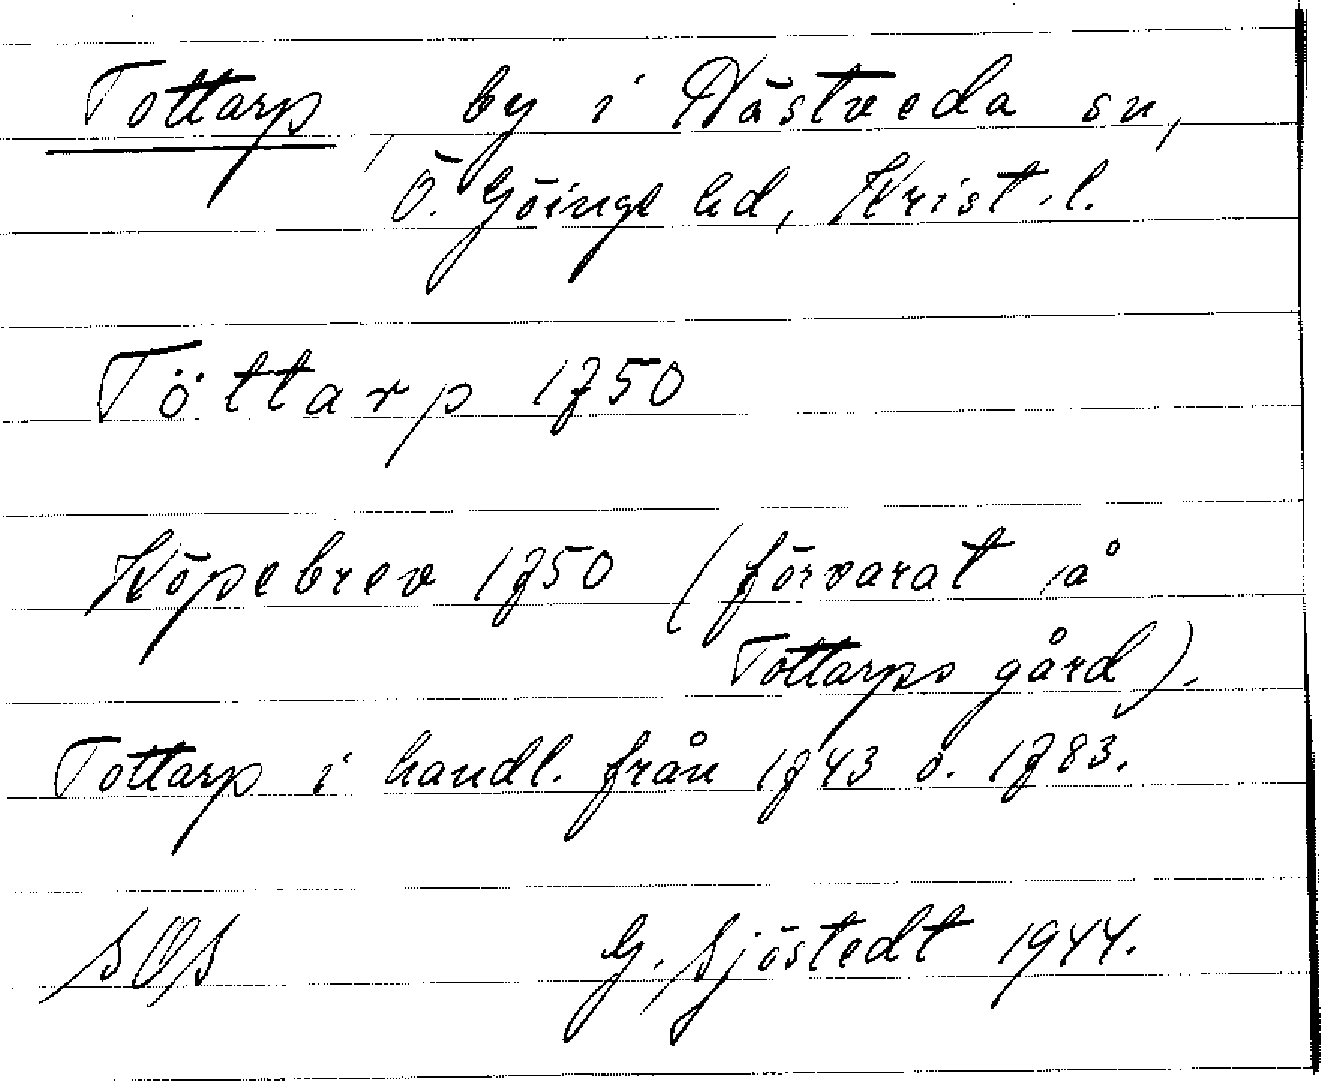 Tottarp, by i Nästveda sn,
Ö. Göinge hd, Krist. l.
Töttarp 1750
Köpebrev 1750 (förvarat å
Tottarps gård).
Tottarp i handl. från 1743 o. 1783.
SOS
G. Sjöstedt 1944.